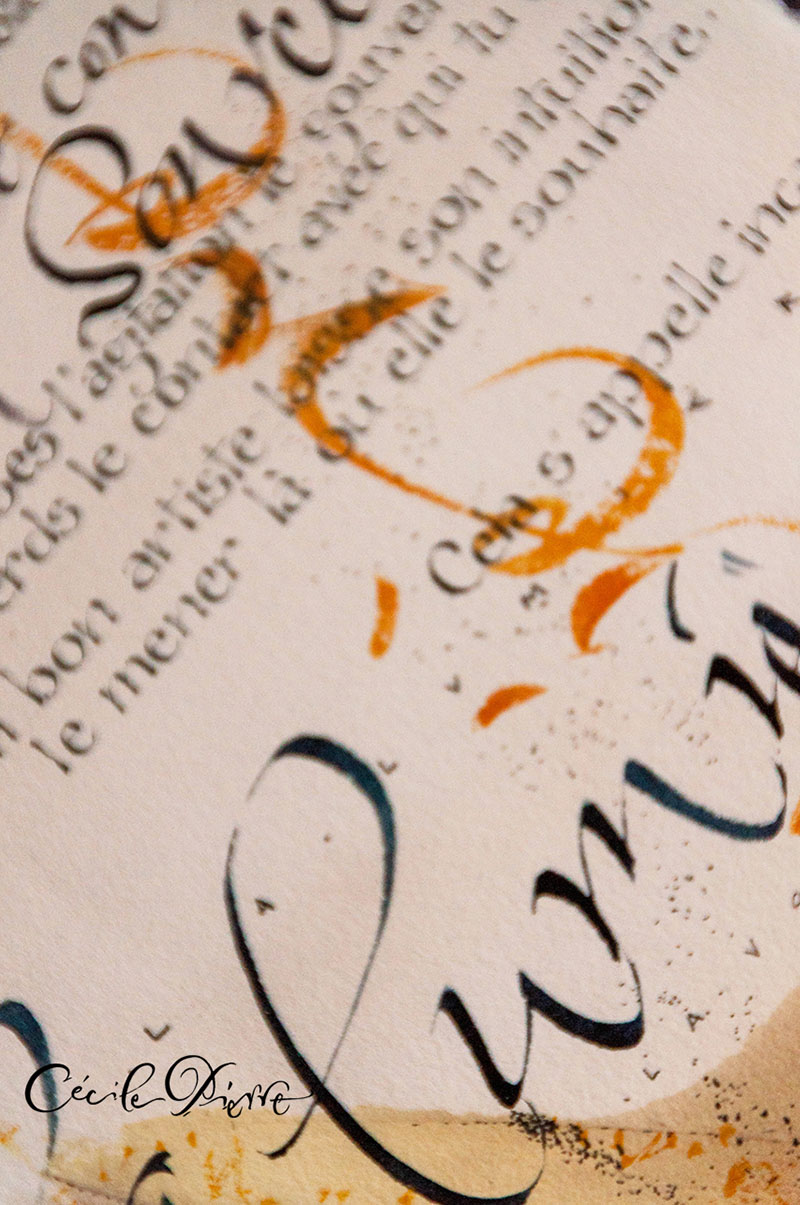 con
son
l'agitation le souven
perds le contact avec qui tu
bon artiste laisse son intuition
le mener là où elle le souhaite.
Cela s'appelle inca
lumi
Cécile Pierre